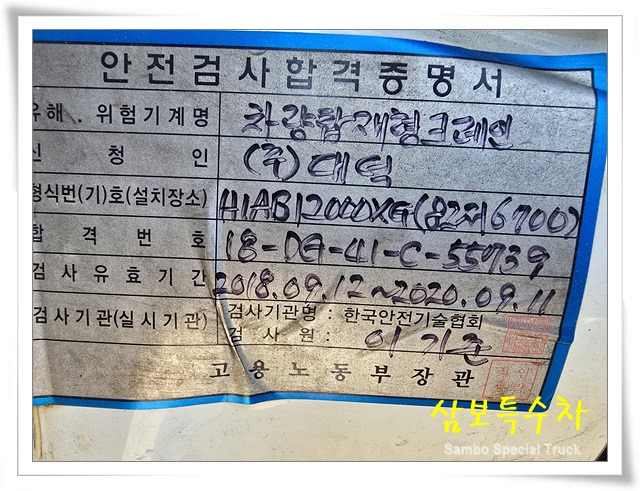 안전검사합격증명서
유해 . 위험기계명 차량탑재형크레인
신청인 (주)대덕
형식번(기)호(설치장소) HIAB12000XG(용2저6700)
합격번호 18-DG-41-C-55739
검사유효기간 2018.09.12~2020.09.11
검사기관(실시기관) 검사기관명 : 한국안전기술협회
검사원 : 이기준
고용노동부장관
삼보특수차
Sambo Special Truck